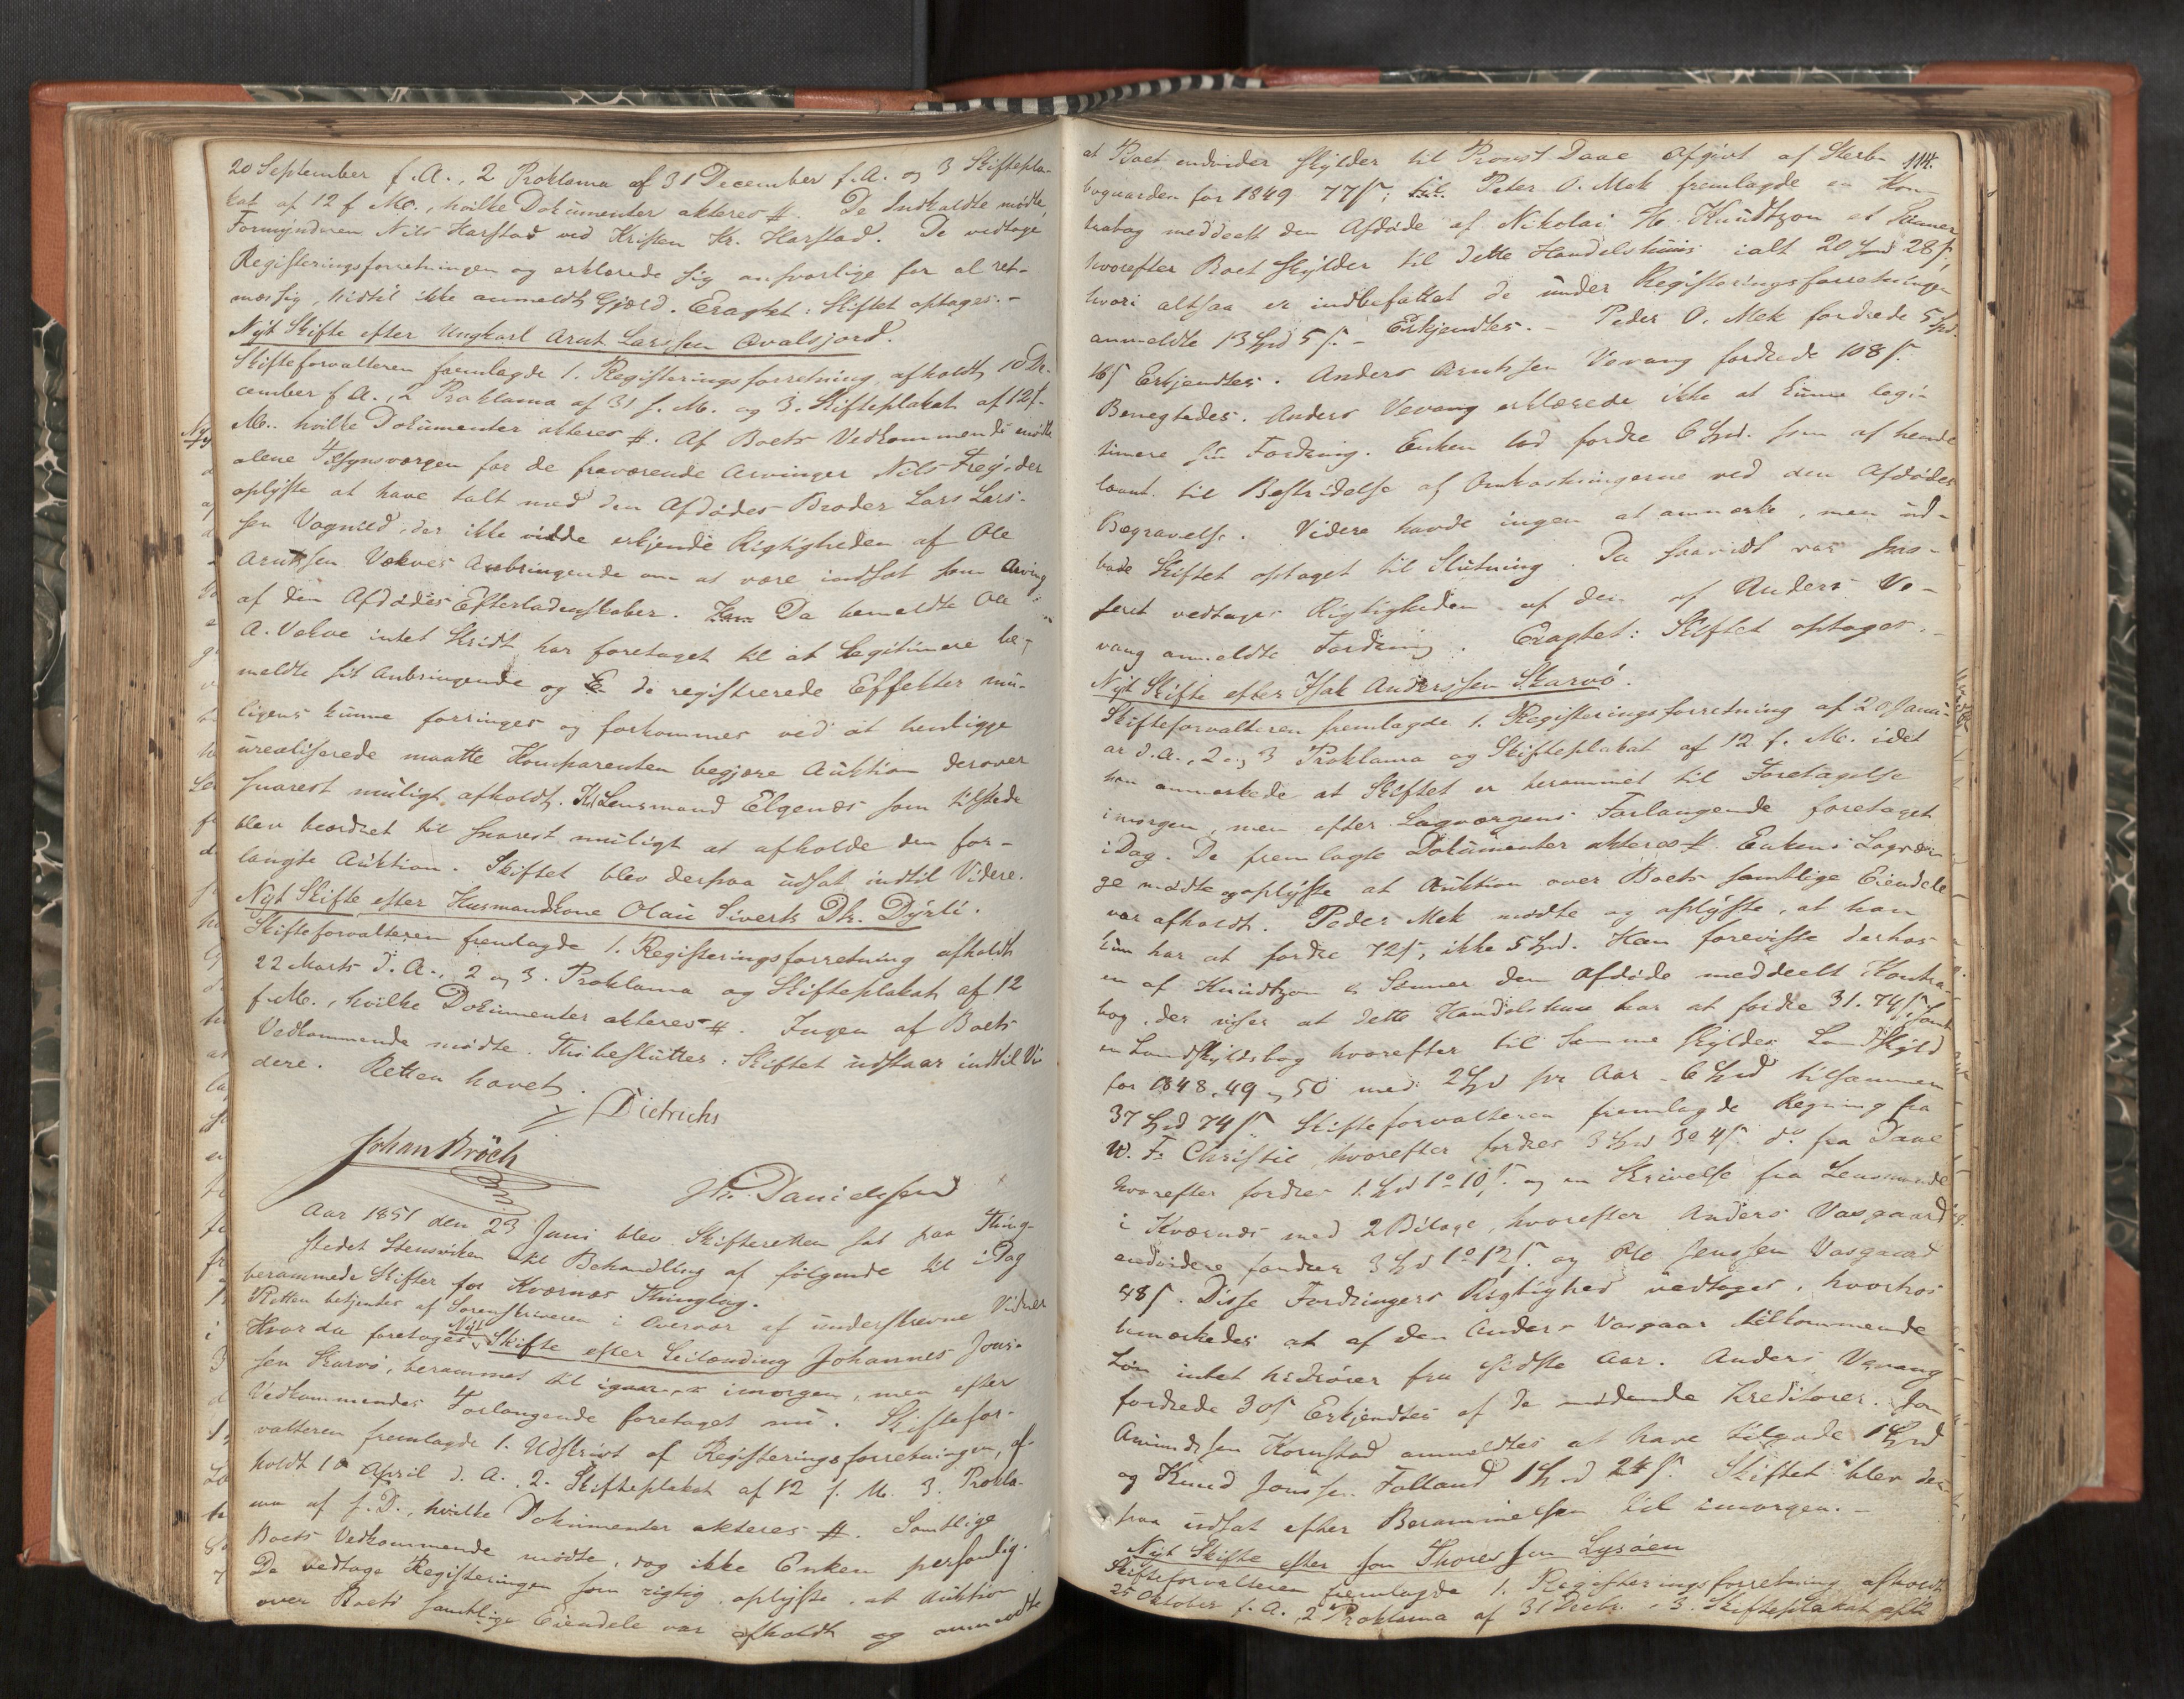 20 September f. A., 2 Proklama af 31 December f. A. og 3 Skiftepla-
kat af 12 f. M., hvilke Dokumenter akteres #. De Indkaldte mødte,
Formynderen Nils Harstad ved Kristen Kr. Harstad. De vedtoge
Registeringsforretningen og erklærede sig ansvarlige for al ret-
mæssig, hidtil ikke anmeldt Gjæld. Eragtet: Skiftet optages.-
Nyt Skifte efter Ungkarl Arnt Larssen
Skifteforvalteren fremlagde 1. Registeringsforretning, afholdt 10 De-
cember f. A., 2 Proklama af 31 s. M. og 3. Skifteplakat af 12 f.
M.. hvilke Dokumenter akteres #. Af Boets Vedkommende mødte
alene Tilsynsværgen for de fraværende Arvinger Nils Frey, der
oplyste at have talt med den Afdødes Broder Lars Lars-
sen, der ikke vidde erkjende Rigtigheden af Ole
Arntsen Vekves Anbringende om at være indsat som Arving
af den Afdødes Efterladenskaber. Da bemeldte Ole
A. Vekve intet Skridt har foretaget til at Legitimere be-
meldte sit Anbringende og de registrerede Effekter mu-
ligens kunne forringes og forkommes ved at henligge
urealiserede maatte Komparenten begjære Auktion derover
snarest muligt afholdt. Kst. Lensmand Elgenæs som tilstede
blev beordret til snarest muligt at afholde den for-
langte Auktion. Skiftet blev derpaa udsat indtil Videre.
Nyt Skifte efter Husmandskone Olau Siverts Dtr. Dyrli.
Skifteforvalteren fremlagde 1. Registeringsforretning afholdt
22 Marts d. A., 2 og 3. Proklama og Skifteplakat af 12
f. M., hvilke Dokumenter akteres #. Ingen af Boets
Vedkommende mødte. Thi besluttes: Skiftet udstaar indtil Vi-
dere. Retten hævet.
Dietrichs
Johan Bröch
Danielssen
Aar 1851 den 23 Juni blev Skifteretten sat paa Thing-
stedet Stensviken til Behandling af følgende til i Dag
berammede Skifter for Kværnæs Thinglag.
Retten betjentes af Sorenskriveren i Overvær af underskrevne Vidner
Hvor da foretoges Nyt Skifte efter Leilænding Johannes Jons-
sen Skarvø, berammet til imorgen, men efter
Vedkommendes Forlangende foretaget nu. Skiftefor-
valteren fremlagde 1. Udskrivt af Registeringsforretningen, af-
holdt 10 April d. A. 2. Skifteplakat af 12 f. M. 3. Prokla-
ma af s. D., hvilke Dokumenter akteres #. Samtlige
Boets Vedkommende mødte, dog ikke Enken personlig.
De vedtoge Registeringen som rigtig, oplyste, at Auktion
over Boets samtlige Eiendele var afholdt og anmeldte
114.
at Boet endvider skylder til Provst Daae Afgivt af
for 1849 77 s; Peter O. Mek fremlagde en Kon-
trabog meddeelt den Afdøde af Nikolai H. Knudtzon et Sønner
hvorefter Boet skylder til dette Handelshuus ialt 20 Spd 28 s,
hvori altsaa er indbefattet de under Registeringsforretningen
anmeldte 13 Spd 5 s. - Erkjendtes. - Peder O. Mek fordrede 5 Spd.
16 s Erkjendtes. Anders Arntsen Vevang fordrede 108 s.
Benegtedes. Anders Vevang erklærede ikke at kunne legi-
timere sin Fordring. Enken lod fordre 6 Spd. som af hende
laant til Bestridelse af Omkostningerne ved den Afdødes
Begravelse. Videre havde ingen at anmærke, men ud-
bade Skiftet optaget til Slutning. Da saavidt var pas-
seret vedtoges Rigtigheden af den af Anders Ve-
vang anmeldte Fordring. Eragtet: Skiftet optages.-
Nyt Skifte efter Isak Anderssen Skarvø.
Skifteforvalteren fremlagde 1. Registeringsforretning af 20 Janu-
ar d. A., 2 og 3 Proklama og Skifteplakat af 12 f. M. idet
han anmærkede at Skiftet er berammet til Foretagelse
imorgen, men efter Lagværgens Forlangende foretaget
i Dag. De fremlagte Dokumenter akteres #. Enkens Lagvær-
ge mødte og oplyste at Auktion over Boets samtlige Eiendele
var afholdt. Peder Mek mødte og oplyste, at han
kun har at fordre 72 s, ikke 5 Spd. Han foreviste derhos
en af Knudtzon & Sønner den Afdøde meddeelt Kontra-
bog, der viser at dette Handelshuus har at fordre 31. 74 s, samt
en Landskyldsbog hvorefter til Samme skyldes Landskyld
for 1848, 49 og 50 med 2 Spd pr Aar - 6 Spd tilsammen
37 Spd 74 s. Skifteforvalteren fremlagde Regning fra
W. F. Christie hvorefter fordres 3 Spd 3 o 4 s. do fra Daae
hvorefter fordres 1 Spd 1 o 10 s. og en Skrivelse fra Lensmanden
i Kværnæs med 2 Bilage, hvorefter Anders Vaagaard
endvidere fordrer 3 Spd 1 o 12 s. og Ole Jenssen Vasgaard
48 s. Disse Fordringers Rigtighed vedtoges, hvorhos
bemærkedes at af den Anders Vasgaar tilkommende
Løn intet hidrører fra sidste Aar. Anders Vevang
fordrede 30 s Erkjendtes af de mødende Kreditorer. Jon
Amundsen Kornstad anmeldtes at have tilgode 1 Spd
og Knud Jonssen Folland 1 Spd 24 s. Skiftet blev der-
paa udsat efter Berammelsen til imorgen.-
Nyt Skifte efter Jon Thoressen Lysøen
Skifteforvalteren fremlagde 1. Registeringsforretning afholdt
25 Oktober f. A., 2 Proklama af 31 Decbr. 3. Skifteplakat af 12